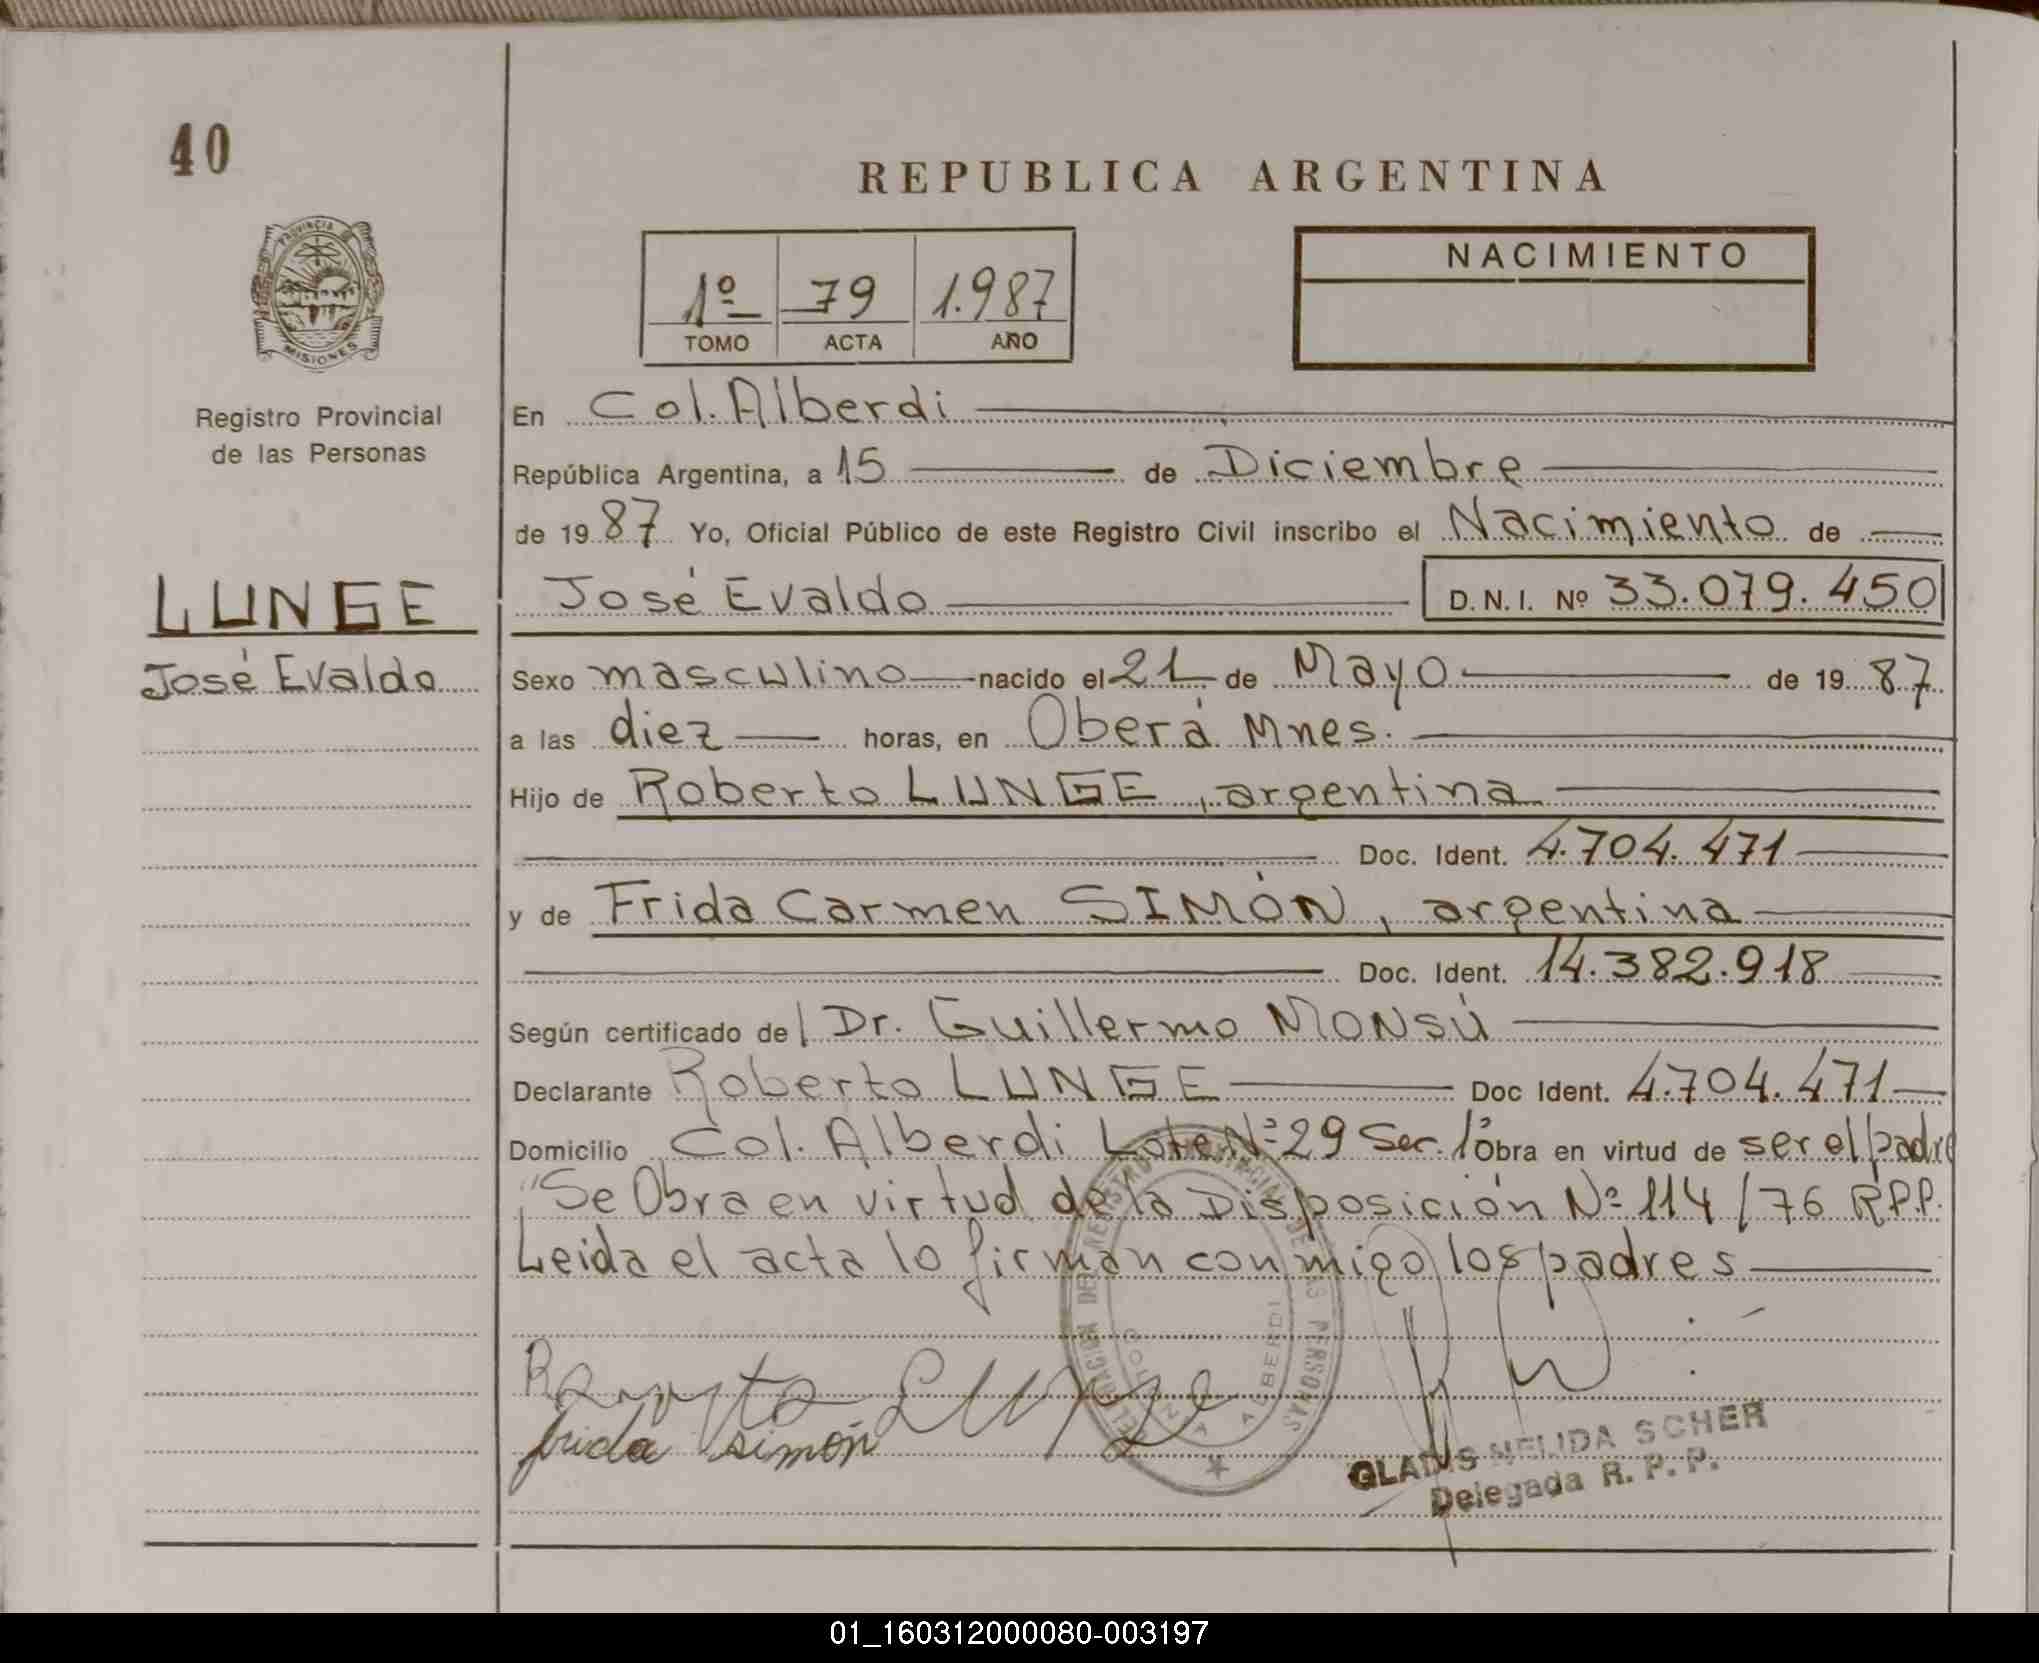 40
REPUBLICA ARGENTINA
PROVINCIA DE
MISIONES
Registro Provincial
de las Personas
1º 79 1.987
TOMO ACTA AÑO
NACIMIENTO
En Col. Alberdi
República Argentina, a 15 de Diciembre
de 19 87 Yo, Oficial Público de este Registro Civil inscribo el Nacimiento de
LUNGE
José Evaldo D.N.I. Nº 33.079.450
José Evaldo
Sexo masculino nacido el 21 de Mayo de 19 87
a las diez horas, en Oberá Mnes.
Hijo de Roberto LUNGE, argentina
Doc. Ident. 4.704.471
y de Frida Carmen SIMÓN, argentina
Doc. Ident. 14.382.918
Según certificado del Dr. Guillermo MONSÚ
Declarante Roberto LUNGE Doc Ident. 4.704.471
Domicilio Col. Alberdi Lote Nº 29 Sec. 1º Obra en virtud de ser el padre
"Se Obra en virtud de la Disposición Nº 114/76 R.P.P.
Leida el acta lo firman conmigo los padres
DELEGACION DEL REGISTRO PROVINCIAL DE LAS PERSONAS
COLONIA ALBERDI
Roberto Lunge
frida simón
GLADIS NELIDA SCHER
Delegada R. P. P.
01_160312000080-003197